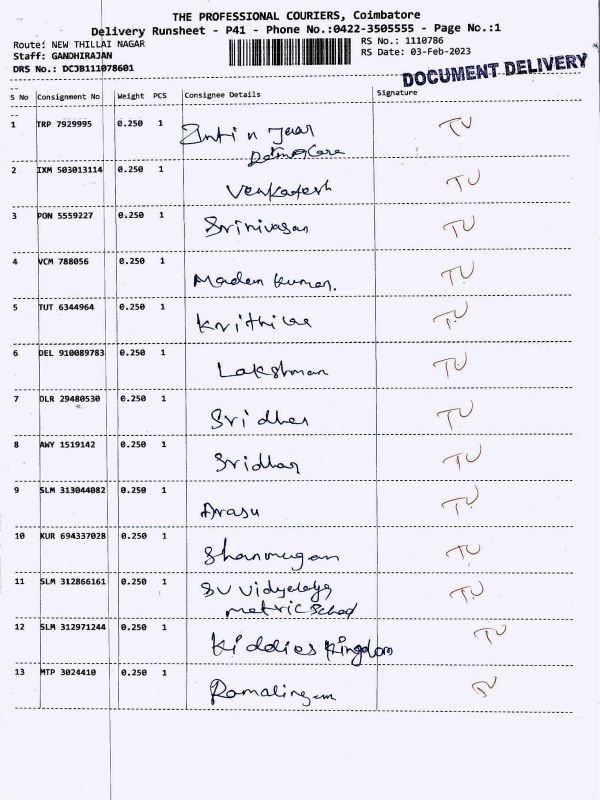 THE PROFESSIONAL COURIERS, Coimbatore
Delivery Runsheet - P41 - Phone No.:0422-3505555 - Page No.:1
Route: NEW THILLAI NAGAR
RS No.: 1110786
Staff: GANDHIRAJAN
RS Date: 03-Feb-2023
DRS No.: DCJB111078601
DOCUMENT DELIVERY
S No Consignment No Weight PCS Consignee Details Signature
1 TRP 7929995 0.250 1 TU
2 IXM 503013114 0.250 1 Venkatesh TU
3 PON 5559227 0.250 1 Srinivasan TU
4 VCM 788056 0.250 1 Madan Kumar. TU
5 TUT 6344964 0.250 1 Krithika TU
6 DEL 910089783 0.250 1 Lakshman TU
7 DLR 29480530 0.250 1 Sridhar TU
8 AWY 1519142 0.250 1 Sridhar TU
9 SLM 313044082 0.250 1 Arasu TU
10 KUR 694337028 0.250 1 Shanmugam TU
11 SLM 312866161 0.250 1 SV Vidyalaya TU
Matric School
12 SLM 312971244 0.250 1 Kiddies Kingdom TU
13 MTP 3024410 0.250 1 Ramalingam TU